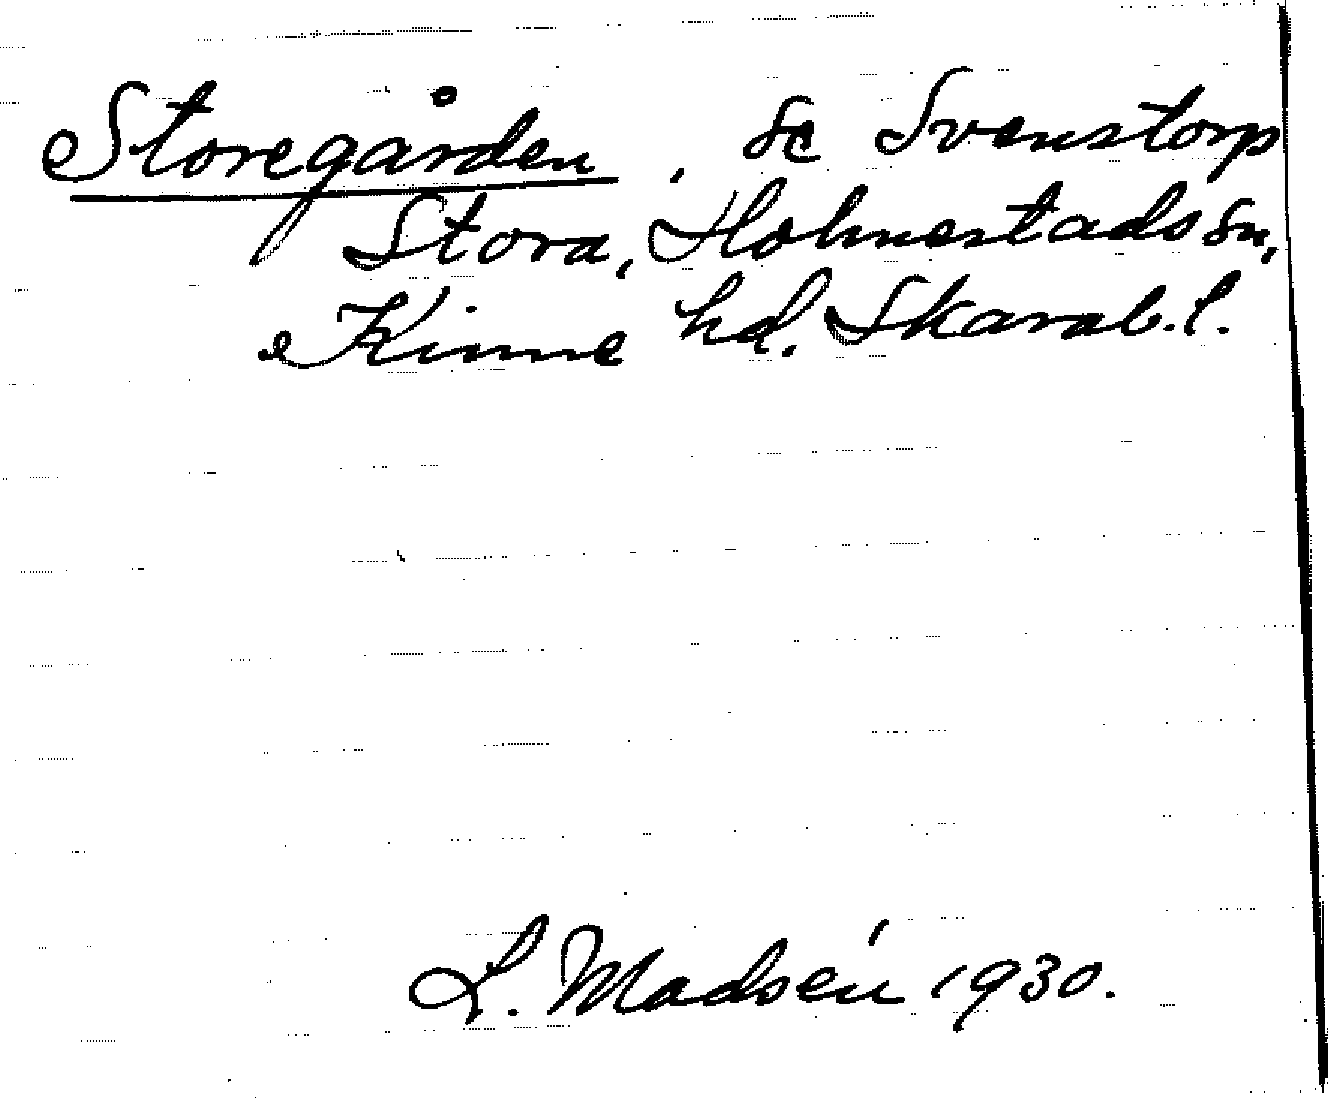 Storegården, se Svenstorp
Stora, Holmestads sn,
Kinne hd. Skarab. l.
L. Madsén 1930.